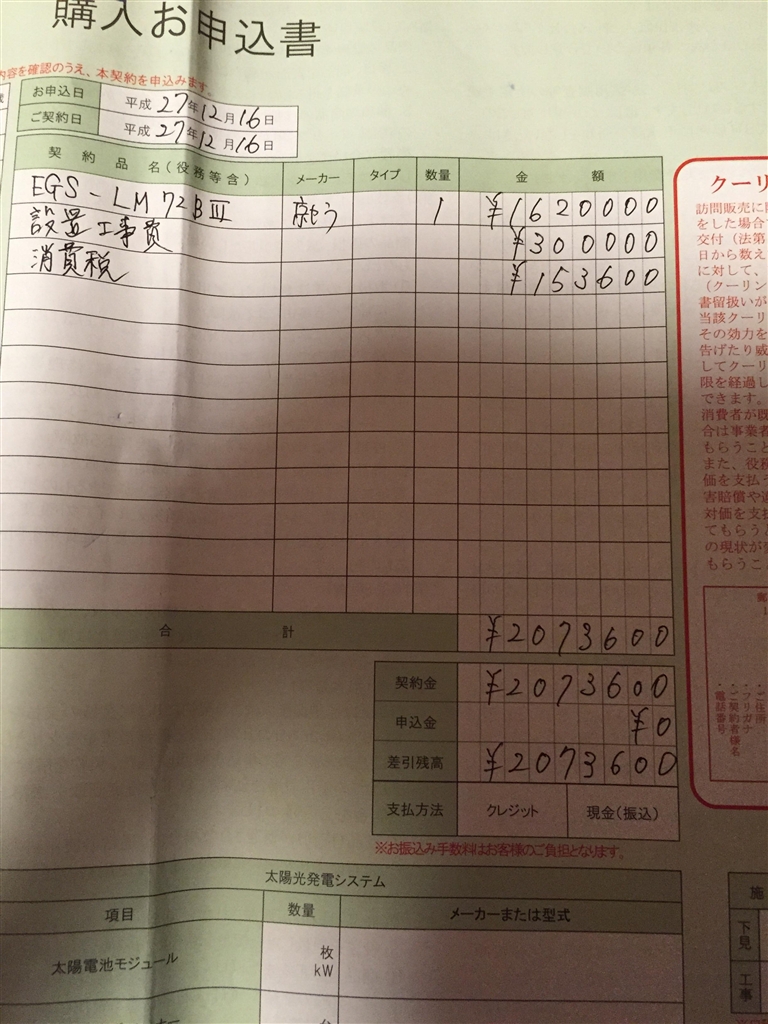 購入お申込書
内容を確認のうえ、本契約を申込みます。
お申込日 平成 27年 12月 16日
ご契約日 平成 27年 12月 16日
契約品名(役務等含) メーカー タイプ 数量 金額
EGS-LM72BⅢ 京セラ 1 ¥1620000
設置工事費 ¥300000
消費税 ¥153600
合計 ¥2073600
契約金 ¥2073600
申込金 ¥0
差引残高 ¥2073600
支払方法 クレジット 現金(振込)
※お振込み手数料はお客様のご負担となります。
太陽光発電システム
項目 数量 メーカーまたは型式
太陽電池モジュール 枚 kW
クーリ
訪問販売に
をした場合
交付(法第
日から数え
に対して、
(クーリン
書留扱いが
当該クーリ
その効力を
告げたり威
してクーリ
限を経過し
できます。
消費者が既
合は事業者
もらうこと
また、役務
価を支払う
害賠償や違
対価を支払
てもらうこ
の現状が
もらうこ
・ご住所
・フリガナ
・ご契約者様名
・電話番号
施
下見
工事